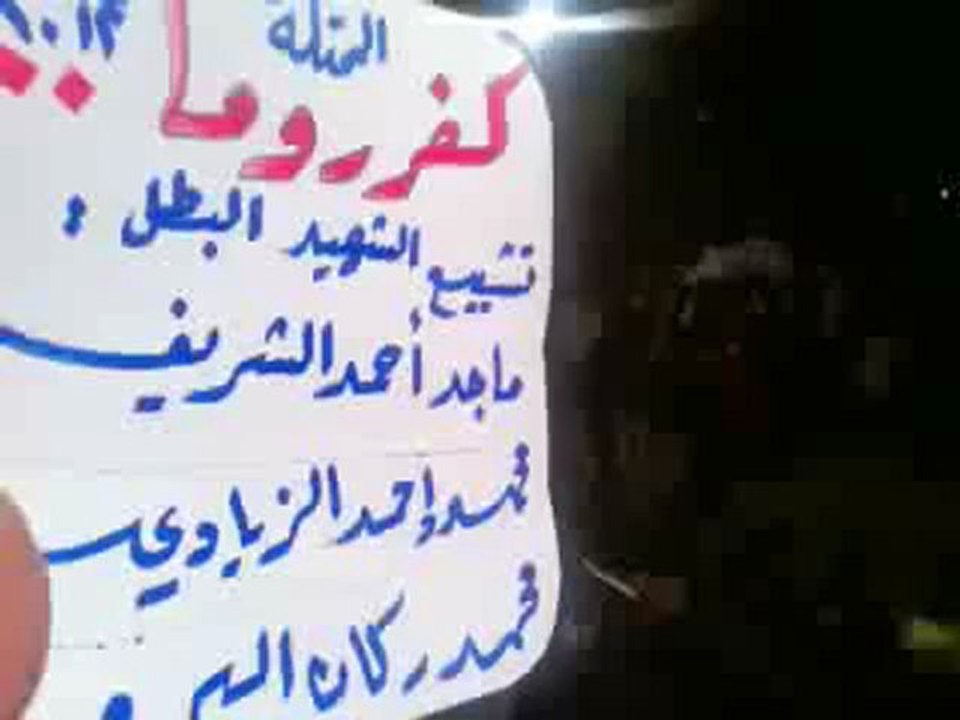 المحتلة
كفرروما
تشييع الشهيد البطل :
ماجد أحمد الشريف
محمد واحمد الزياوي
محمد ركان